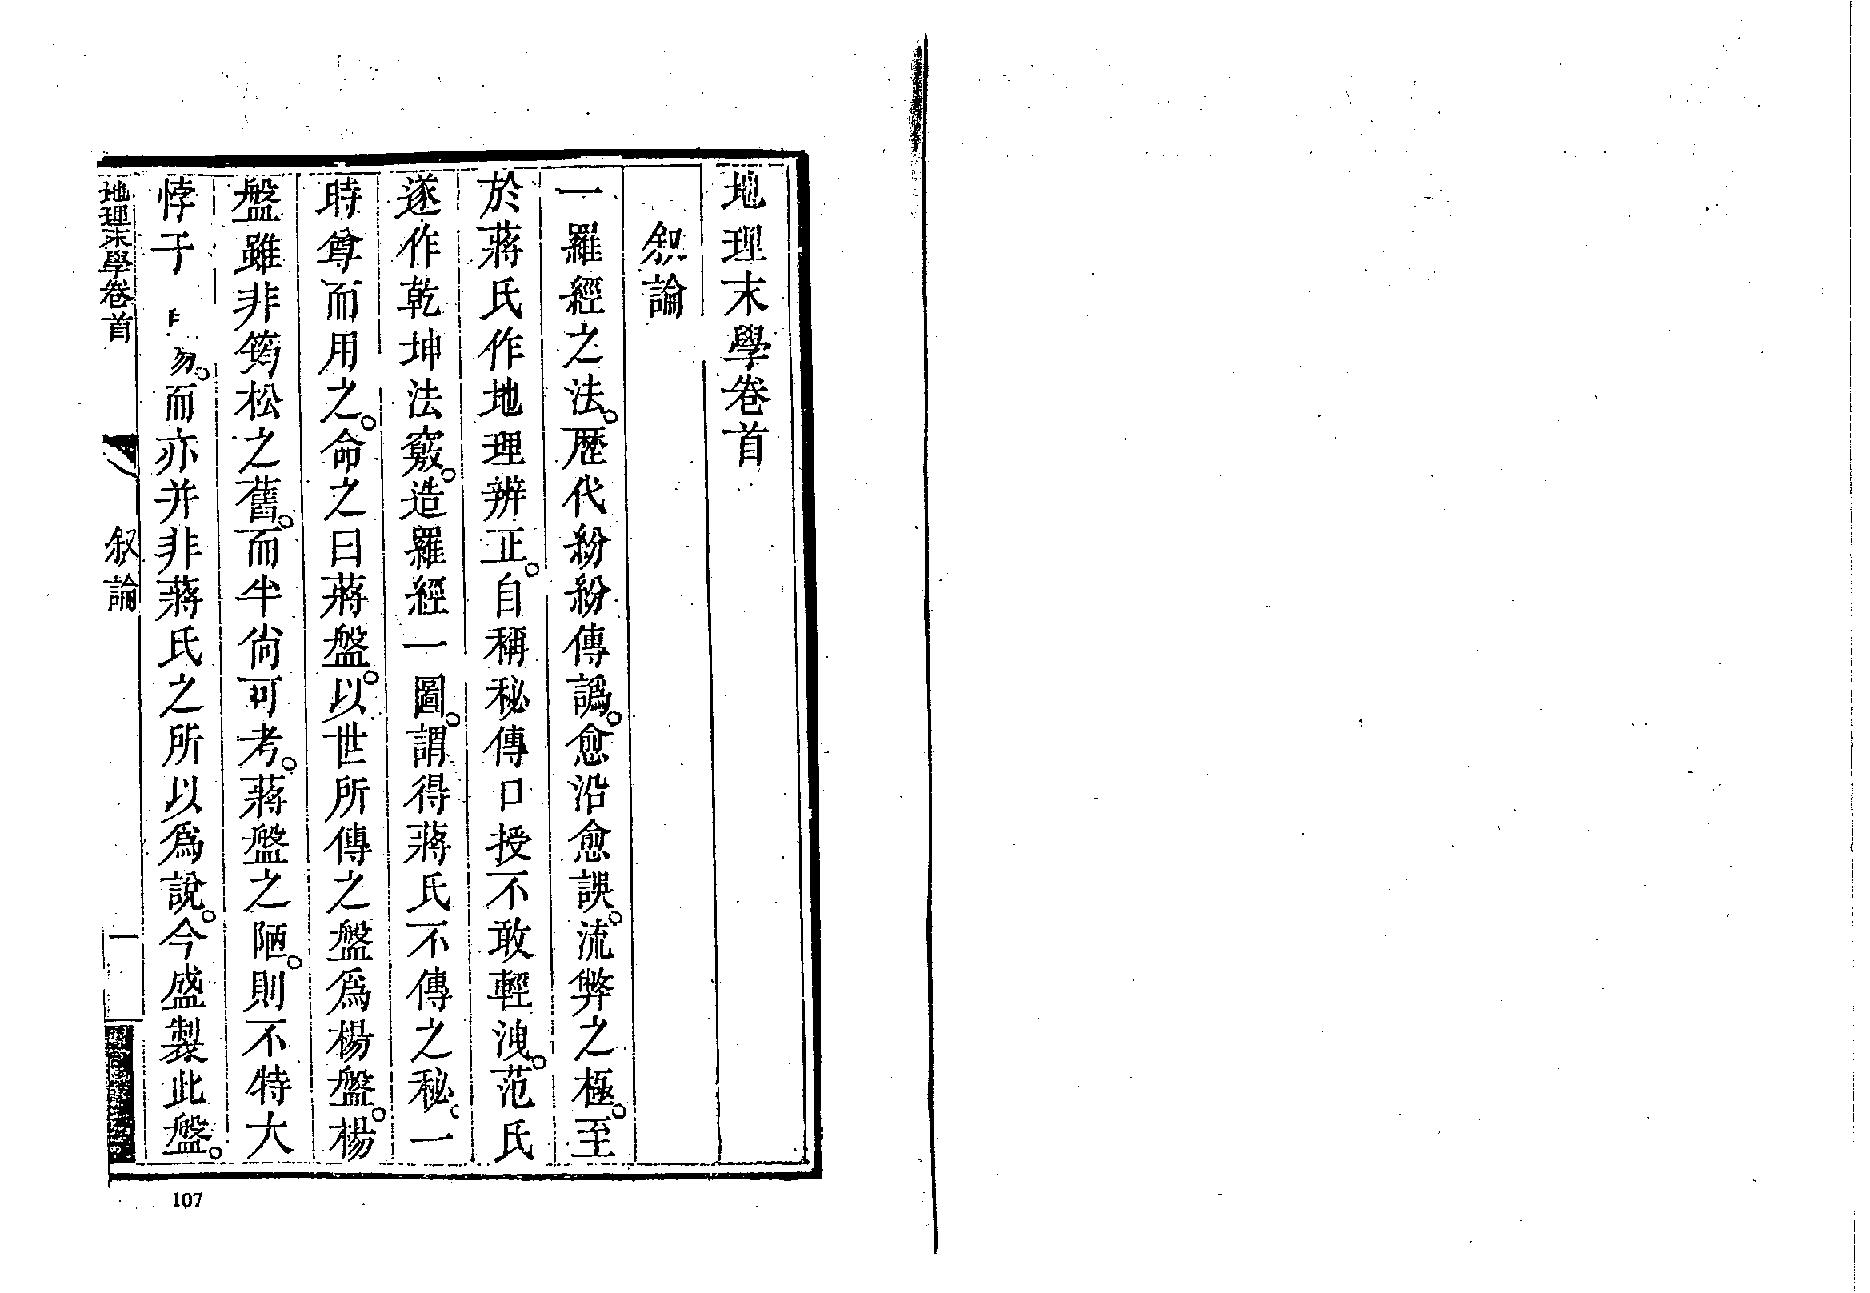 地理末學卷首
叙論
一羅經之法。歷代紛紛傳譌。愈沿愈誤。流弊之極。至
於蔣氏作地理辨正。自稱秘傳口授不敢輕洩。范氏
遂作乾坤法竅。造羅經一圖。謂得蔣氏不傳之秘。一
時尊而用之。命之曰蔣盤。以世所傳之盤爲楊盤。楊
盤雖非筠松之舊。而半尙可考。蔣盤之陋。則不特大
悖于 易。而亦并非蔣氏之所以爲說。今盛製此盤。
地理末學卷首
叙論
一
107